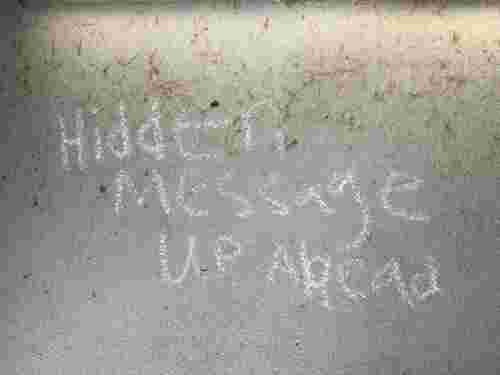 HiddEn
MESSagE
UP AhEAd